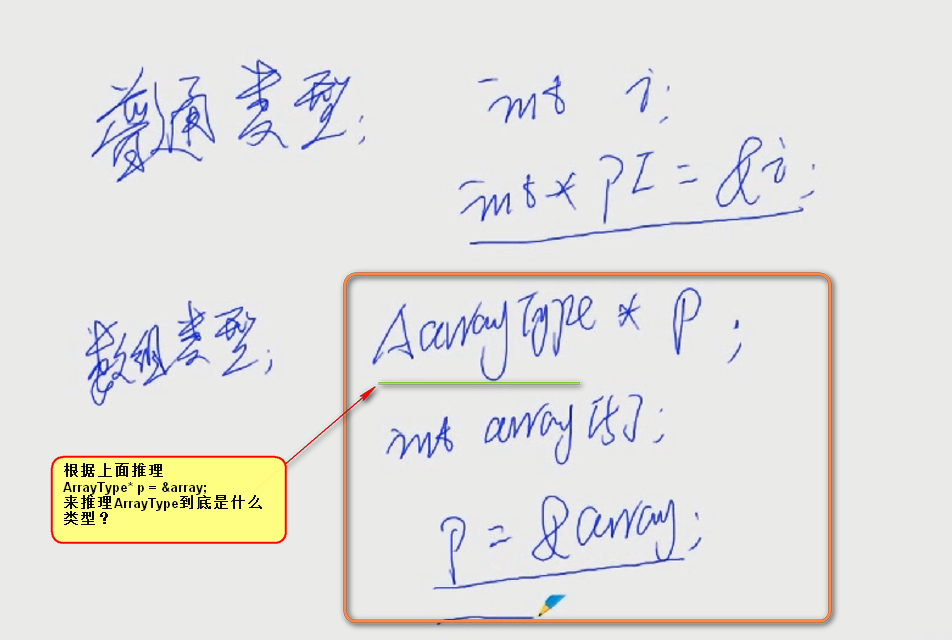 普通类型; int i;
int* pI = &i;
数组类型; AarrayType * p ;
int array[5];
根据上面推理
ArrayType* p = &array;
来推理ArrayType到底是什么
类型？
p = &array;